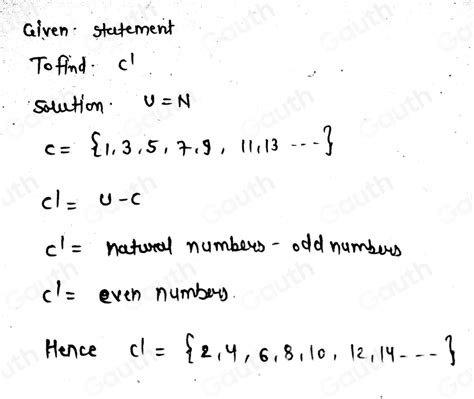 Given. statement
To find. c'
Solution. U = N
c = {1, 3, 5, 7, 9, 11, 13 ---}
c' = U - C
c' = natural numbers - odd numbers
c' = even numbers.
Hence c' = {2, 4, 6, 8, 10, 12, 14 - - - }